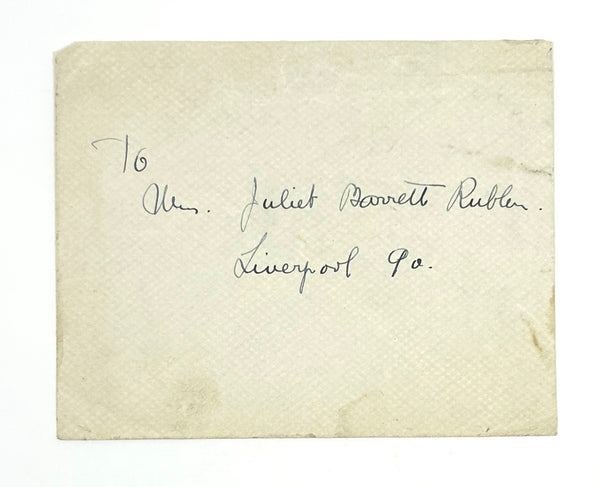 To
Mrs. Juliet Barrett Rublee.
Liverpool Pa.